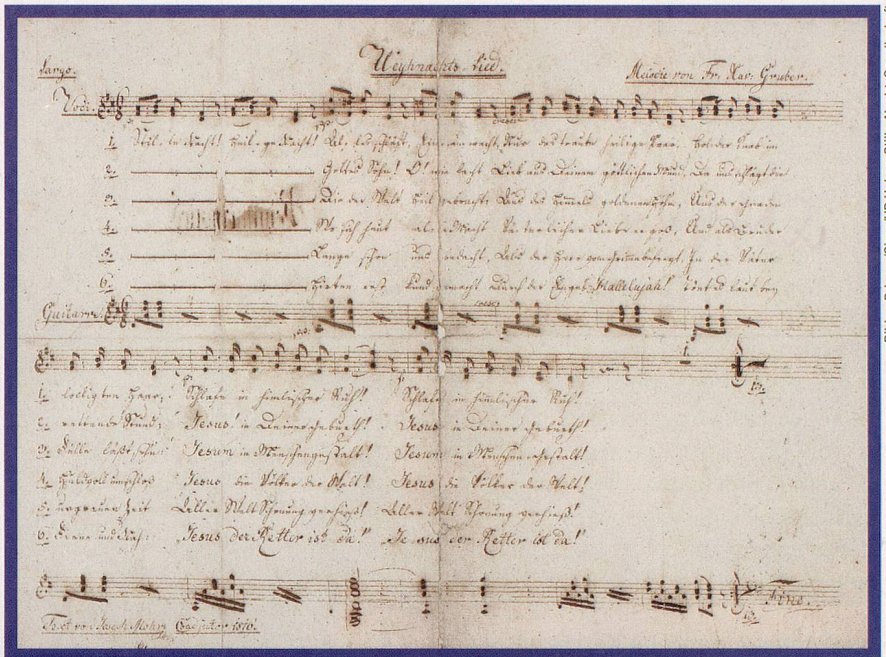 Weyhnachts-Lied.
Largo. Melodie von Fr. Xav. Gruber.
Voci.
1. Stil-le Nacht! Heil-ge Nacht! Al-les schläft, Einsam wacht, Nur das traute heilige Paar. Holder Knab' im
2. Gottes Sohn! O! wie lacht Lieb' aus Deinem göttlichen Mund, Da uns schlägt die
3. Die der Welt Heil gebracht, Aus des Himmels goldenen Höhn, Uns der Gnaden
4. Wo sich heut alle Macht Väterlicher Liebe ergoß, Und als Bruder
5. Lange schon uns bedacht, Als der Herr vom Grimme befreyt, In der Väter
6. Hirten erst kund gemacht Durch der Engel Hallelujah! Tönt es laut bey
Guitarre
1. lockigten Haar; Schlafe in himmlischer Ruh! Schlafe in himmlischer Ruh!
2. rettende Stund. Jesus! in Deiner Geburth! Jesus in Deiner Geburth!
3. Fülle läßt sehn: Jesum in Menschengestalt! Jesum in Menschengestalt!
4. Huldvoll umschloß Jesus die Völker der Welt! Jesus die Völker der Welt!
5. urgrauer Zeit Aller Welt Schonung verhieß! Aller Welt Schonung verhieß!
6. Ferne und Nah: "Jesus der Retter ist da!" "Jesus der Retter ist da!"
Fine.
Text von Joseph Mohr Coadjutor 1816.